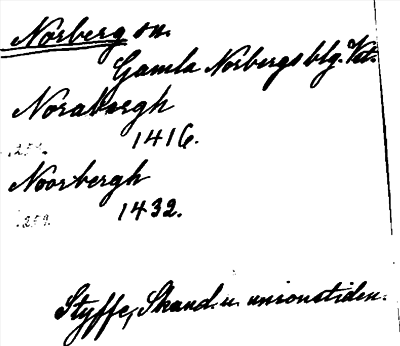 Norberg sn.
Gamla Norbergs blg. Vstm.
Norabergh
1416.
.259.
Noorbergh
1432.
.259.
Styffe, Skand. u. unionstiden.